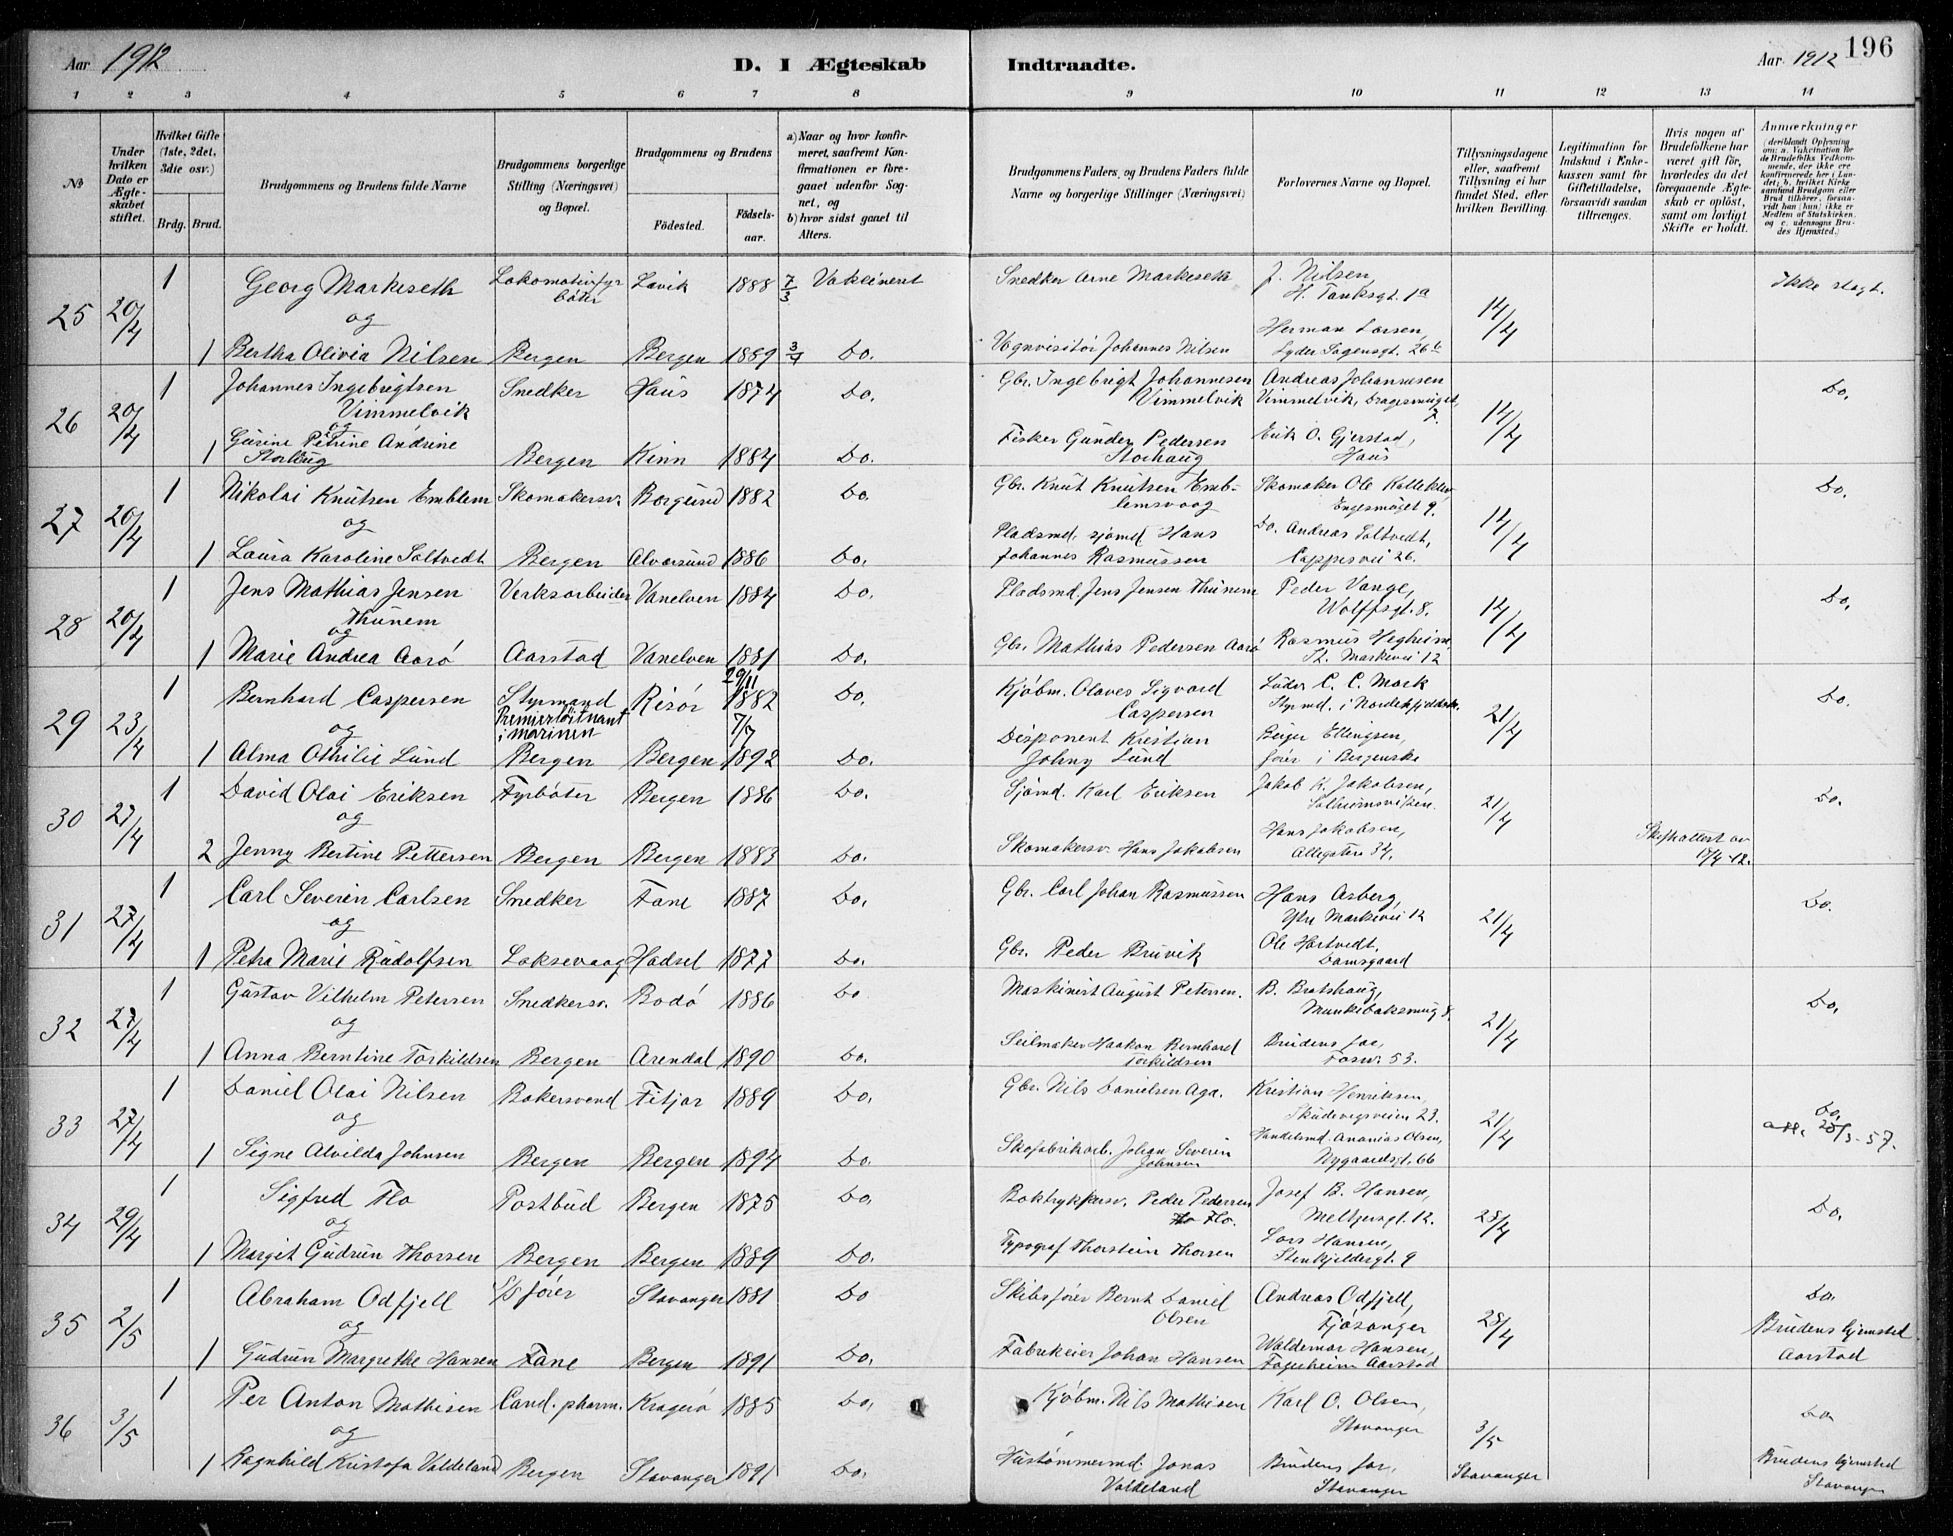 Aar 1912
D. I Ægteskab
Indtraadte.
Aar 1912 196
1 2 3 4 5 6 7 8 9 10 11 12 13 14
No
Under hvilken Dato er Ægteskabet stiftet.
Hvilket Gifte (1ste, 2det, 3die osv.)
Brdg. Brud.
Brudgommens og Brudens fulde Navne
Brudgommens borgerlige Stilling (Næringsvei) og Bopæl.
Brudgommens og Brudens
Födested.
Födsels-aar.
a) Naar og hvor konfirmeret, saafremt Konfirmationen er foregaaet udenfor Sognet, og
b) hvor sidst gaaet til Alters.
Brudgommens Faders og Brudens Faders fulde Navne og borgerlige Stillinger (Næringsvei)
Forlovernes Navne og Bopæl.
Tillysningsdagene eller, saafremt Tillysning ei har fundet Sted, efter hvilken Bevilling.
Legitimation for Indskud i Enkekassen samt for Giftetilladelse, forsaavidt saadan tiltrænges.
Hvis nogen af Brudefolkene har været gift för, hvorledes da det foregaaende Ægteskab er oplöst, samt om lovligt Skifte er holdt.
Anmærkninger
25 20/4 1 Georg Markeseth Lokomotivfyrböter Lavik 1888 7/3 Snedker Arne Markeseth J. Nilsen, H. Tanksgt. 1a 14/4 Ikke slegt.
og
1 Bertha Olivia Nilsen Bergen Bergen 1889 Do. Vognvisitör Johannes Nilsen Herman Larsen, Lyder Sagensgt. 26b
26 20/4 1 Johannes Ingebrigtsen Vimmelvik Snedker Haus 1874 Do. Gbr. Ingebrigt Johannesen Vimmelvik Andreas Johannesen Vimmelvik, 7. 14/4 Do.
og
1 Gurine Petrine Andrine Storhaug Bergen Kinn 1884 Do. Fisker Gunder Pedersen Storhaug Erik O. Gjerstad, Haus
27 20/4 1 Nikolai Knutsen Emblem Skomakersv. Borgund 1882 Do. Gbr. Knut Knutsen Emblemsvaag Skomaker Ole 9. 14/4 Do.
og
1 Laura Karoline Soltvedt Bergen Alversund 1886 Do. Pladsmd. sjömd Hans Johannes Rasmussen Do. Andreas Soltvedt, Cappesvei 26.
28 20/4 1 Jens Mathias Jensen Thunem Verksarbeider Vanelven 1884 Do. Pladsmd. Jens Jensen Thunem Peder Vange, Wolffsgt. 8. 14/4 Do.
og
1 Marie Andrea Aarö Aarstad Vanelven 1881 Do. Gbr. Mathias Pedersen Aarö Rasmus Hegheim, Markevei 12
29 23/4 1 Bernhard Caspersen Styrmand Premierlöitnant i marinen Risör 29/11 1882 Do. Kjøbm. Olaves Sigvard Caspersen Lüder C. C. Mork Styrmd. i Nordenfjeldske. 21/4 Do.
og
1 Alma Othilie Lund Bergen Bergen 7/7 1892 Do. Disponent Kristian Johny Lund Birger Ellingsen, förer i Bergenske
30 27/4 1 David Olai Eriksen Fyrböter Bergen 1886 Do. Sjömd. Karl Eriksen Jakob K. Jakobsen, Solheimsviken. 21/4 Do.
og
2 Jenny Bertine Pettersen Bergen Bergen 1883 Do. Skomakersv. Hans Jakobsen Hans Jakobsen, Allegaten 34. Skifteattest av
31 27/4 1 Carl Severin Carlsen Snedker Fane 1887 Do. Gbr. Carl Johan Rasmussen Hans Asberg, Ytre Markevei 12 21/4 Do.
og
1 Petra Marie Rudolfsen Laksevaag Hadsel 1877 Do. Gbr. Peder Bruvik Ole Hartvedt, Damsgaard
32 27/4 1 Gustav Vilhelm Petersen Snedkersv. Bodö 1886 Do Maskinist August Petersen. B. Bratshaug, Munkebæksmug 8. 21/4 Do.
og
1 Anna Berntine Torkildsen Bergen Arendal 1890 Do. Seilmaker Haakon Bernhard Torkildsen Brudens far, 53.
33 27/4 1 Daniel Olai Nilsen Bakersvend Fitjar 1889 Do. Gbr. Nils Danielsen Aga. Kristian Henriksen, Skudevigsveien 23. 21/4 Do.
og
1 Signe Alvilda Johnsen Bergen Bergen 1894 Do. Skofabrikarb. Johan Severin Johnsen Handelsmd. Ananias Olsen, Nygaardsgt. 66
34 29/4 1 Sigfred Flo Postbud Bergen 1875 Do. Boktrykkersv. Peder Pedersen Flo. Josef B. Hansen, Meltzersgt. 12. 28/4 Do.
og
1 Margit Gudrun Thorsen Bergen Bergen 1889 Do. Typograf Thorstein Thorsen Lars Hansen, Stenkjeldergt. 9
35 2/5 1 Abraham Odfjell S/S förer Stavanger 1881 Do Skibsförer Bernt Daniel Olsen Andreas Odfjell, Fjösanger 28/4 Do. Brudens hjemsted Aarstad
og
1 Gudrun Margrethe Hansen Fane Bergen 1891 Do. Fabrikeier Johan Hansen Waldemar Hansen, Fageheim Aarstad
36 3/5 1 Per Anton Mathisen Cand. pharm. Kragerö 1885 Do. Kjöbm. Nils Mathisen Karl O. Olsen, Stavanger 3/5 Stavanger Do. Brudens hjemsted Stavanger
og
1 Ragnhild Kristofa Valdeland Bergen Stavanger 1891 Do. Hustömmermd. Jonas Valdeland Brudens far, Stavanger